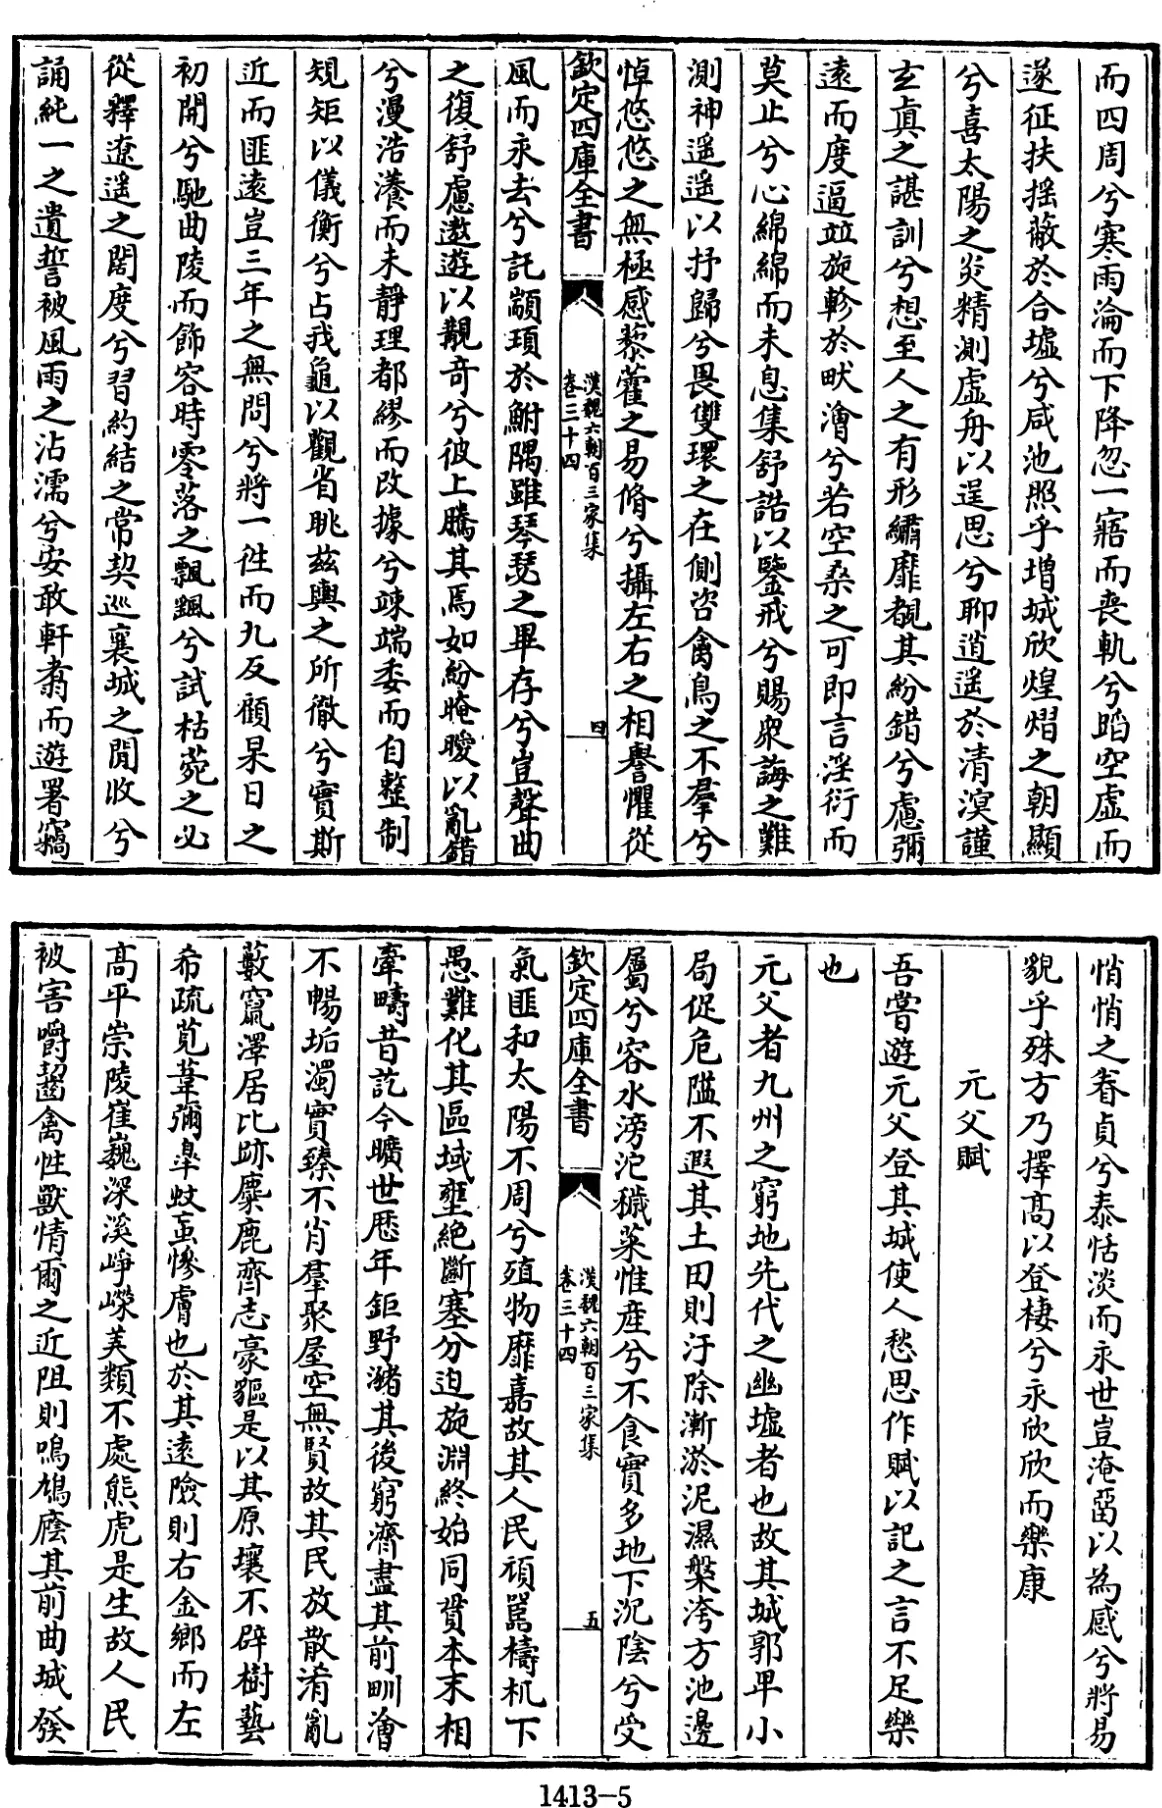 而四周兮寒雨淪而下降忽一寤而喪軌兮蹈空虛而
遂征扶揺蔽於合墟兮咸池照乎増城欣煌熠之朝顯
兮喜太陽之炎精測虛舟以逞思兮聊逍遥於清溟謹
玄真之諶訓兮想至人之有形繡靡覩其紛錯兮慮彌
遠而度逼竝旋軫於畎澮兮若空桑之可即言淫衍而
莫止兮心綿綿而未息集舒誥以鑒戒兮賜衆誨之難
測神遥遥以抒歸兮畏雙環之在側咨禽鳥之不羣兮
悼悠悠之無極感藜藿之易脩兮攝左右之相譽懼從
欽定四庫全書
漢魏六朝百三家集
卷三十四
四
風而永去兮託顓頊於鮒隅雖琴瑟之畢存兮豈聲曲
之復舒慮遨遊以覯奇兮彼上騰其焉如紛晻曖以亂錯
兮漫浩瀁而未靜理都繆而改據兮竦端委而自整制
規矩以儀衡兮占我龜以觀省眺兹輿之所徹兮實斯
近而匪遠豈三年之無問兮將一徃而九反顧杲日之
初開兮馳曲陵而飾容時零落之飄颻兮試枯菀之必
從釋遼遥之闊度兮習約結之常契巡襄城之閒收兮
誦純一之遺誓被風雨之沾濡兮安敢軒翥而遊署竊
悄悄之眷貞兮泰恬淡而永世豈淹畱以為感兮將易
貌乎殊方乃擇髙以登棲兮永欣欣而樂康
元父賦
吾嘗遊元父登其城使人愁思作賦以記之言不足樂
也
元父者九州之窮地先代之幽墟者也故其城郭卑小
局促危隘不遐其土田則汙除漸淤泥濕槃洿方池邊
屬兮容水滂沱穢菜惟産兮不食實多地下沉陰兮受
欽定四庫全書
漢魏六朝百三家集
卷三十四
五
氣匪和太陽不周兮殖物靡嘉故其人民頑嚚檮杌下
愚難化其區域壅絶斷塞分迫旋淵終始同貫本末相
牽疇昔訖今曠世歴年鉅野瀦其後窮濟盡其前甽澮
不暢垢濁實臻不肖羣聚屋空無賢故其民放散淆亂
藪竄澤居比跡麋鹿齊志豪貙是以其原壤不辟樹藝
希疏莧葦彌臯蚊䖟慘膚也於其遠險則右金鄉而左
髙平崇陵崔巍深溪崢嶸美類不處熊虎是生故人民
被害嚼齧禽性獸情爾之近阻則鳴鳩䕃其前曲城發
1413-5